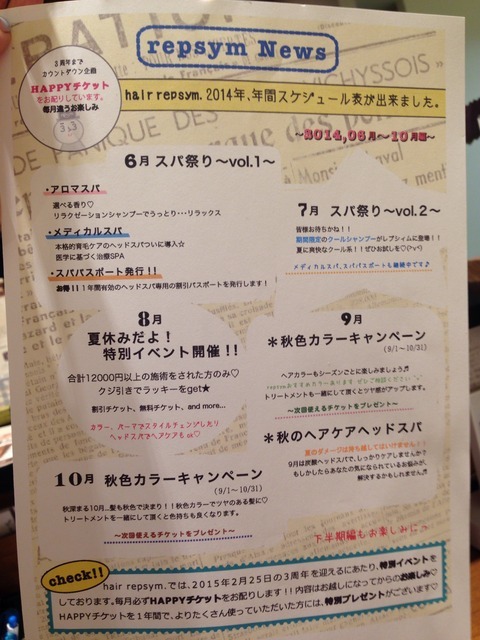 repsym News
3周年まで
カウントダウン企画
HAPPYチケット
をお配りしています。
毎月違うお楽しみ
hair repsym.2014年、年間スケジュール表が出来ました。
～2014,06月～10月編～
6月 スパ祭り～vol.1～
・アロマスパ
選べる香り♡
リラクゼーションシャンプーでうっとり・・・リラックス
・メディカルスパ
本格的育毛ケアのヘッドスパついに導入☆
医学に基づく治療SPA
・スパパスポート発行！！
お得！！1年間有効のヘッドスパ専用の割引パスポートを発行します！
7月 スパ祭り～vol.2～
皆様お待ちかね！！
期間限定のクールシャンプーがレプシィムに登場！！
夏に爽快なクール系！！ぜひお試しを
メディカルスパ、スパパスポートも継続中です♪
8月
夏休みだよ！
特別イベント開催！！
合計12000円以上の施術をされた方のみ♡
クジ引きでラッキーをget★
割引チケット、無料チケット、and more...
カラー、パーマでスタイルチェンジしたり
ヘッドスパでヘアケアも ok♡
9月
＊秋色カラーキャンペーン
(9/1～10/31)
ヘアカラーもシーズンごとに楽しみましょう♬
repsymおすすめカラーあります
トリートメントも一緒にして頂くとツヤ感がアップします。
～次回使えるチケットをプレゼント～
＊秋のヘアケアヘッドスパ
夏のダメージは持ち越してはいけません！！
9月は炭酸ヘッドスパで、しっかりケアしませんか？
もしかしたらあなたの気になられているお悩みが、
解決するかもしれません♬
10月 秋色カラーキャンペーン
(9/1～10/31)
秋深まる10月...髪も秋色で決まり！！秋色カラーでツヤのある髪に♡
トリートメントも一緒にして頂くと色持ちも良くなります。
～次回使えるチケットをプレゼント～
下半期編もお楽しみに
check!!
hair repsym.では、2015年2月25日の3周年を迎えるにあたり、特別イベントを
しております。毎月必ずHAPPYチケットをお配りします！！内容はお越しになってからのお楽しみ♡
HAPPYチケットを1年間で、よりたくさん使っていただいた方には、特別プレゼントがございます♡